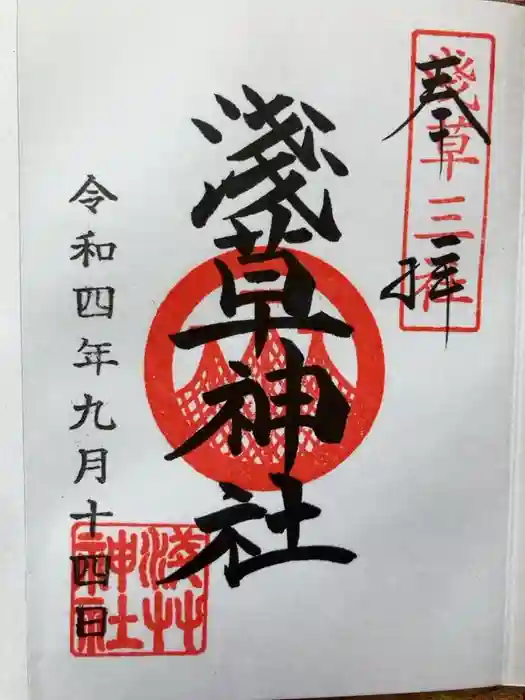 奉拝
淺草三社
淺草神社
令和四年九月十四日
淺草
神社